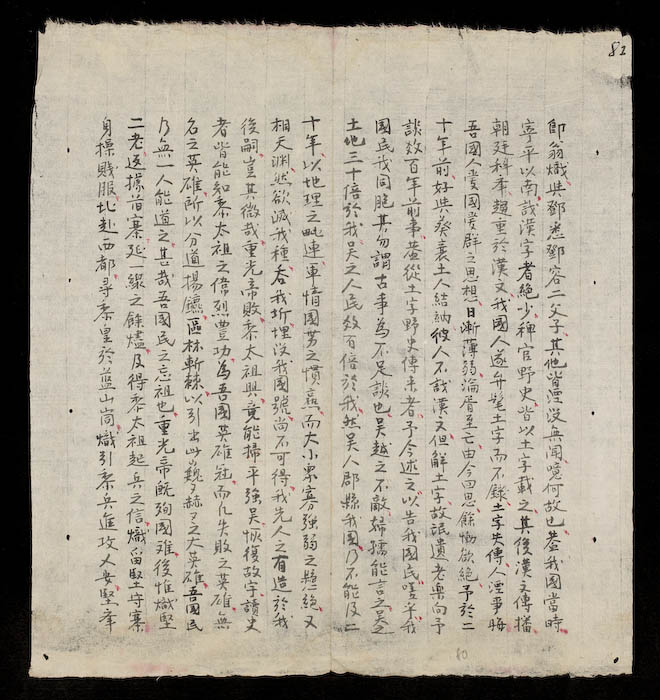 82
即翁熾與鄧悉鄧容二父子其他皆湮沒無聞竟何故也蓋我國當時
寧平以南識漢字者絕少稗官野史皆以土字載之其後漢文傳播
朝廷科舉趨重於漢文我國人遂弁髦土字而不錄土字失傳人湮事晦
吾國人愛國愛群之思想日漸薄弱淪胥至亡由今回思餘慟欲絕予於二
十年前好與癸襄土人結納彼人不識漢文但解土字故氓遺老樂向予
談數百年前事蓋從土字野史傳來者予今述之以告我國民嗟乎我
國民我同胞其勿謂古事為不足談也吳越之不敵婦孺能言之吳之
土地三十倍於我吳之人民數百倍於我然吳人郡縣我國乃不能及二
十年以地理之毗連軍情國势之慣熟而大小衆寡強弱之懸絕又
相天淵然欲滅我種吞我圻埋沒我國號尚不可得我先人之有造於我
後嗣豈其微哉重光帝敗黎太祖興竟能掃平強吳恢復故宇讀史
者皆能知黎太祖之偉烈豐功為吾國英雄冠而凡失敗之英雄無
名之英雄所以分道揚鑣區林斬棘以引出此巍々赫々之大英雄吾國民
乃無一人能道之甚哉吾國民之忘祖也重光帝既殉國難後惟熾堅
二老還據首寨延一線之餘燼及得黎太祖起兵之信熾留堅守寨
身操賤服北赴西都尋黎皇於藍山峝熾引黎兵進攻乂安堅率
80